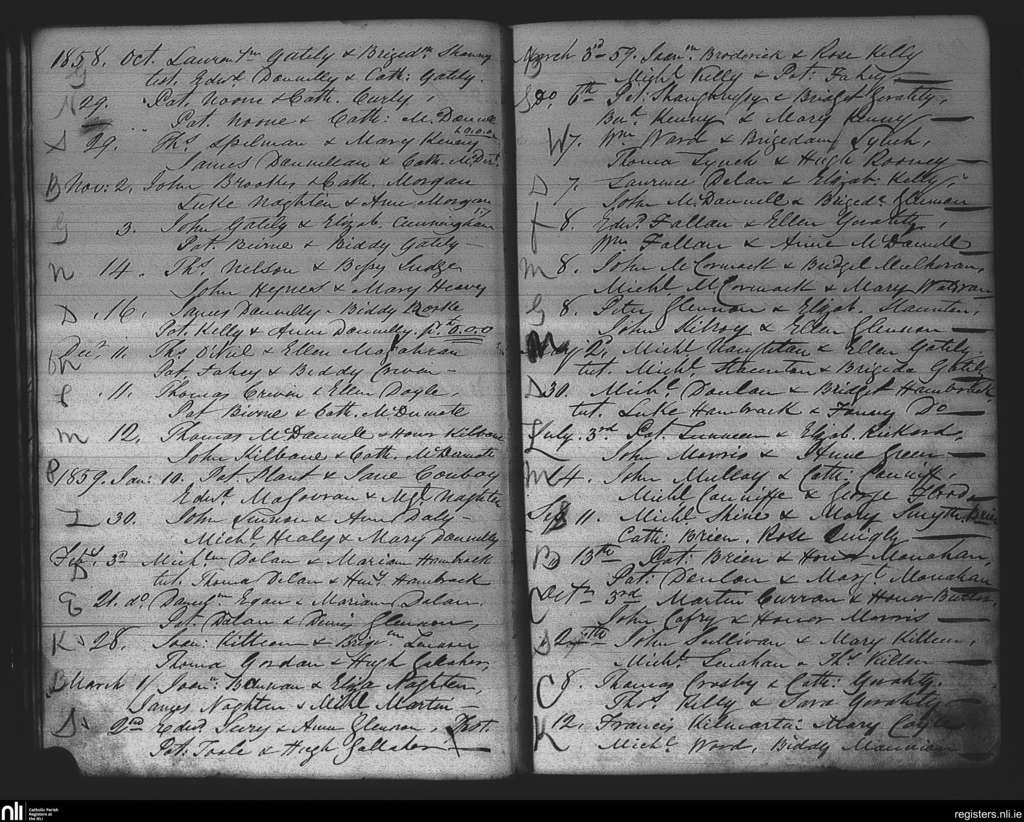 1858. Oct. Laurent^m Gately & Briged^m
G test. Edw^d Donnelly & Cath: Gately.
N 29. Pat. Noone & Cath. Curly,
Pat. Noone & Cath: McDonnell
S 29. Tho^s Spelman & Mary Kenny
James Donnellan & Cath. McDer^t
B Nov: 2. John Brookes & Cath. Morgan
Luke Naghten & Anne Morgan
G 3. John Gately & Elizab. Cunningham
Pat. Beirne & Biddy Gately
N 14. Tho^s Nelson & Bessy Judge
John Heynes & Mary Heavy
D .16. James Donnelly - Biddy
Pat. Kelly & Anne Donnelly. 0.0.0
Dec^r 11. Tho^s O'Neil & Ellen
Pat Fahey & Biddy Crwen
C .11. Thomas Crwen & Ellen Doyle,
Pat Birne & Cath. McDermote
M 12. Thomas McDonnell & Honor Kilbane
John Kilbane & Cath. McDermote
P 1859. Jan: 10. Pat. Plant & Jane Conboy
Edw^d. MaGovran & Mgt Naghten
L 30. John & Anne Daly
Mich^l Healy & Mary Donnelly
Feb. 3^d Mich^m Dolan & Mariam Hambrock
D test. Thoma Dolan & Hen^y Hambrock
E 21. do. Egan & Mariam Dolan.
Pat. Dolan & Glennon,
K 28. Joan: Killeen & Brigi^m
Thoma Gordan & Hugh Gallaher,
B March 1 Joan^m & Eliza Naghten,
James Naghten & Michl Martin
2^nd Edw^d & Anne Glennon, Prot.
Pat: Toole & Hugh Gallaher
March 3^d 59. Joan^m Broderick & Rose Kelly
B Michl Kelly & Pat: Fahey
S Do. 6^th Pat: Shaughnessy & Bridget Geraghty,
Kenny & Mary Kenny
W 7. W^m Ward & Brigedam Lynch,
Thoma Lynch & Hugh Rooney
D 7. Laurence Dolan & Elizab: Kelly,
John McDonnell & Briged^m Glennon
F 8. Edw^d. Fallon & Ellen Geraghty,
W^m Fallon & Anne McDonnell
M 8. John McCormack & Bridget Mulhoran,
Michl McCormack & Mary
G 8. Peter Glennon & Elizab. Staunton,
John Kilroy & Ellen Glennon
N 2, Michl Naughtan & Ellen Gately
test. Michl. Staunton & Brigida Gately
D 30. Mich^l. Donlan & Bridget Hambrock
test. Luke Hambrock & Fanny Do
L July. 3^rd Pat. & Elizab. Rickard,
John Morris & Anne Green
M 4. John Mullay & Cath: Cunniffe,
Michl Cunniffe & George
S 11. Michl Shine & Mary Smyth
Cath: Brien, Rose Quigly
B 13^th Pat: Brien & Honor Monahan,
Pat: Donlon & Marg^t Monahan
C Oct^r 3^rd Martin Curran & Honor Butler,
John Cafry & Honor Morris
S John Sullivan & Mary Killeen,
Michl. Lenahan & Tho^s Killeen
C 8. Thomas Crosby & Cath: Geraghty.
Tho^s Kelly & Sara Geraghty
K 12. Francis Kilmartin: Mary
Michl. Ward, Biddy
nli Catholic Parish
Registers at
the NLI
registers.nli.ie